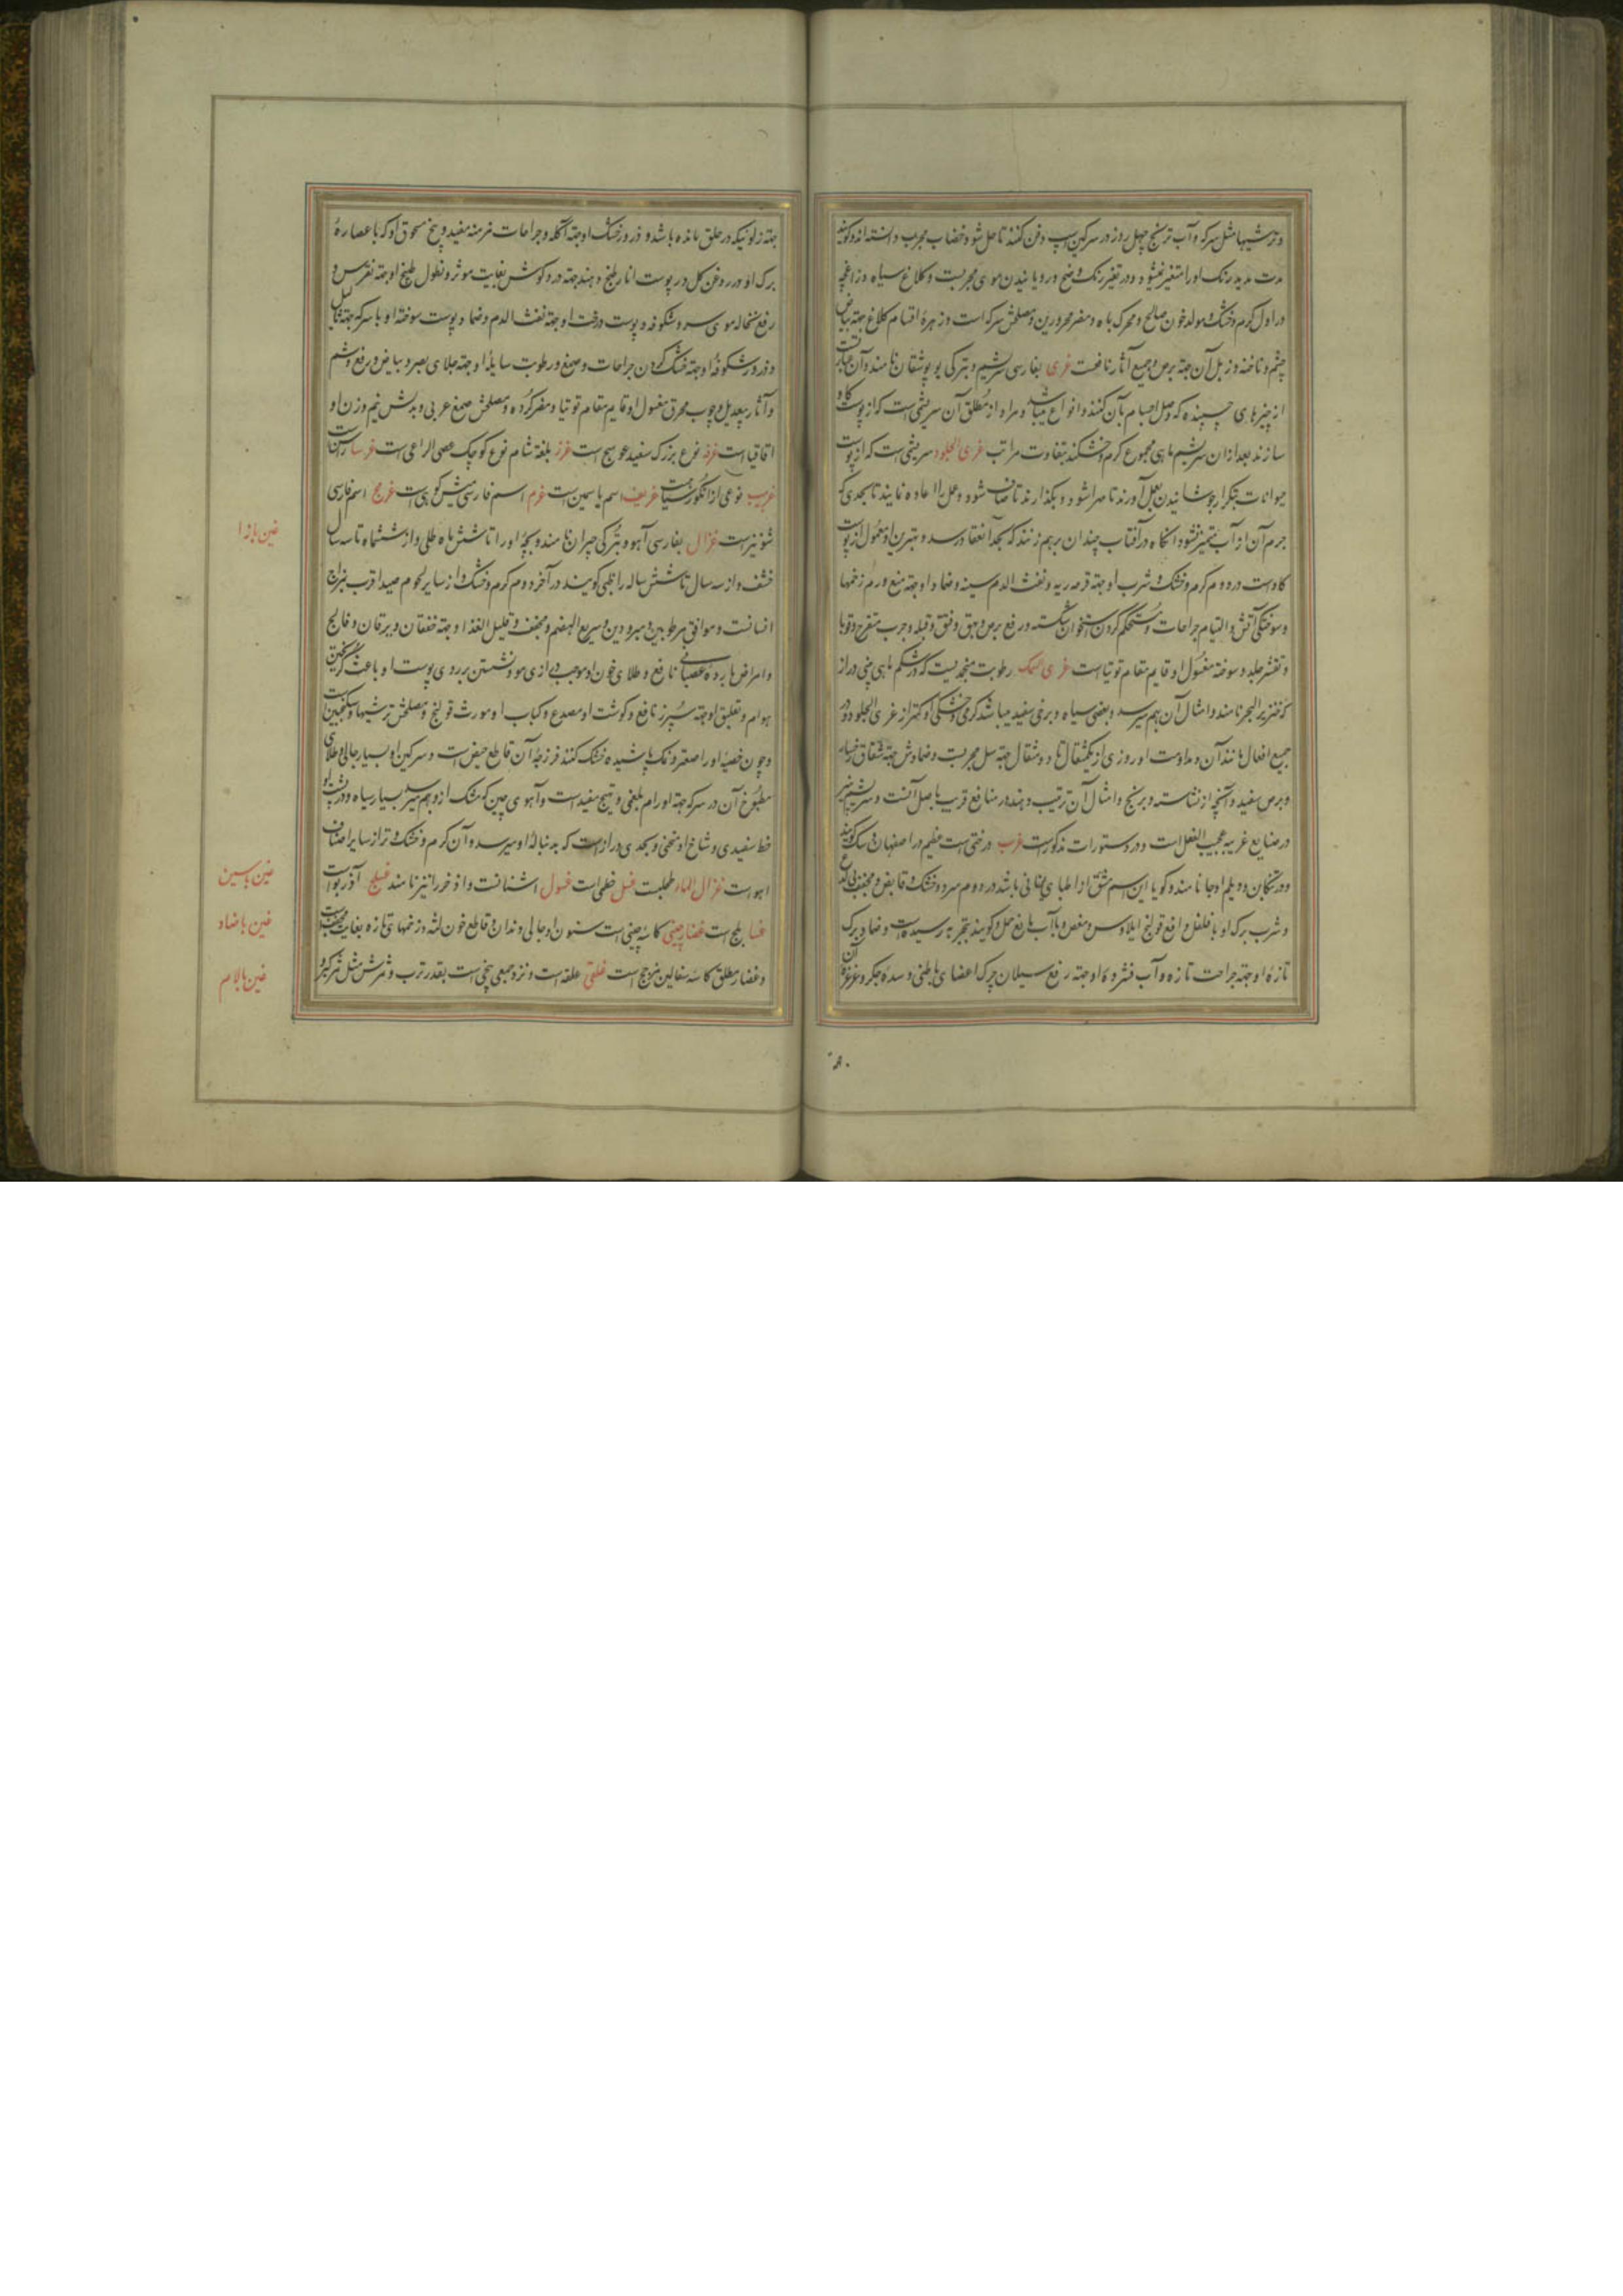 و ترشیها مثل سرکه و آب ترنج چهل روز در سرکین اسب دفن کنند تا حل شود خضاب مجرب دانسته اند و کویند
مدت مدید رنک او را متغیر نمیشود و در تغییر رنک وضح و رویانیدن موی مجربست و کلاغ سیاه و زاغچه
در اول کرم و خشک و مولد خون صالح و محرک باه و مضر محرورین و مصلحش سرکه است و زهرهٔ اقسام کلاغ جهته بیاض
چشم و ناخنه و زبل آن جهته برص و جمیع آثار نافعست غری بفارسی سریشم و بترکی یوپوشقان نامند و آن عبارتست
از چیزهای چسپنده که وصل اجسام بآن کنند و انواع میباشد و مراد از مطلق آن سریشمی است که از پوست کاو
سازند بعد از ان سریشم ماهی مجموع کرم و خشکند بتفاوت مراتب غری الجلود سریشمی است که از پوست
حیوانات بتکرار جوشانیدن بعمل آورند تا مهرا شود و بکذارند تا صاف شود و عمل را اعاده نمایند تا بحدی که
جرم آن از آب متمیز نشود انکاه در آفتاب چندان برهم زنند که بحد انعقاد رسد و بهترین او معمول از پوست
کاوست در دوم کرم و خشک و شرب او جهته قرحه ریه و نفث الدم سینه و ضماد او جهته منع ورم زخمها
و سوختکی آتش و التیام جراحات و مستحکم کردن استخوان شکسته و رفع برص و بهق و فتق و قیله و جرب متقرح و قوبا
و تقشر جلد و سوخته مغسول او قایم مقام توتیا است غری السمک رطوبت منجمدیست که در شکم ماهی بینی دراز
که خنزیر البحر نامند و امثال آن بهم میرسد و بعضی سیاه و برخی سفید میباشد کرمی و خشکی او کمتر از غری الجلود و در
جمیع افعال مانند آن و مداومت او روزی از یکمثقال تا دو مثقال جهته سل مجربست و ضمادش جهته شقاق رخسار
و برص سفید و آنچه از نشاسته و برنج و امثال آن ترتیب دهند در منافع قریب باصل آنست و سریشم پنیر
در صنایع غریبه عجیب الفعل است و در دستورات مذکورست غرب درختی است عظیم در اصفهان وسک کویند
و در تنکابن و دیلم اوجا نامند و کویا این اسم مشتق از اطبای یونانی باشد در دوم سرد و خشک و قابض و مجفف بی لذع
و شرب برک او با فلفل رافع قولنج ایلاوس و مغص و با آب مانع حمل و کویند بتجربه رسیده است و ضماد برک
تازهٔ او جهته جراحت تازه و آب فشردهٔ او جهته رفع سیلان چرک اعضای باطنی و سدهٔ جکر و غرغرهٔ آن
جهته زلوئیکه در حلق مانده باشد و ذرور خشک او جهته آکله و جراحات مزمنه مفید و بیخ مسحوق او که با عصارهٔ
برک او در روغن کل در پوست انار طبخ دهند جهته درد کوش بغایت موثر و نطول طبیخ او جهته نقرس و
رفع نخاله موی سر و شکوفه و پوست درخت او جهته نفث الدم و ضماد پوست سوخته او با سرکه جهته ثآلیل
و ذرور شکوفهٔ او جهته خشک کردن جراحات و صمغ و رطوبت سایلهٔ او جهته جلای بصر و بیاض و رفع وشم
و آثار بیعدیل و چوب محرق مغسول او قایم مقام توتیا و مضر کرده و مصلحش صمغ عربی و بدلش نیم وزن او
اقاقیا است غرقد نوع بزرک سفید عوسج است غرز بلغة شام نوع کوچک عصی الراعی است غرسا راسن است
غربیب نوعی از انکور سیاهست غریف اسم یاسمین است غرم اسم فارسی میش کوهی است غرمج اسم فارسی
شونیز است غزال بفارسی آهو و بترکی جیران نامند و بچهٔ او را تا شش ماه طلی و از ششماه تا سه سال
خشف و از سه سال تا شش ساله را ظبی کویند در آخر دوم کرم و خشک و از سایر لحوم صید اقرب بمزاج
انسانست و موافق مرطوبین و مبرودین و سریع الهضم و مجفف و قلیل الغذا و جهته خفقان و یرقان و فالج
و امراض باردهٔ عصبانی نافع و طلای خون او موجب درازی مو و نشستن بر روی پوست او باعث کریختن
هوام و تعلیق او جهته سپرز نافع و کوشت او مصدع و کباب او مورث قولنج و مصلحش ترشیها و سکنجبین است
و چون خصیهٔ او را صعتر و نمک پاشیده خشک کنند فرزجهٔ آن قاطع حیض است و سرکین او بسیار جالی و طلای
مطبوخ آن در سرکه جهته اورام بلغمی و تهیج مفید است و آهوی چین که مشک ازو بهم میرسد بسیار سیاه و در پشت او
خط سفیدی و شاخ او منحنی و بحدی دراز است که بدنبالهٔ او میرسد و آن کرم و خشک تر از سایر اصناف
اهو است غزال الماء طحلبست غسل خطمی است غسول اشنانست و اذخر را نیز نامند غسلج آذربو است
غسا بلح است غضار چینی کاسهٔ چینی است سنون او جالی دندان و قاطع خون لثه و زخمهای تازه بغایت مجفف است
و غضار مطلق کاسهٔ سفالین مزجج است غلقی علقه است و نزد جمعی بیخی است بقدر ترب و ثمرش مثل ثمر کبر و
غین با زا
غین با سین
غین با ضاد
غین با لام